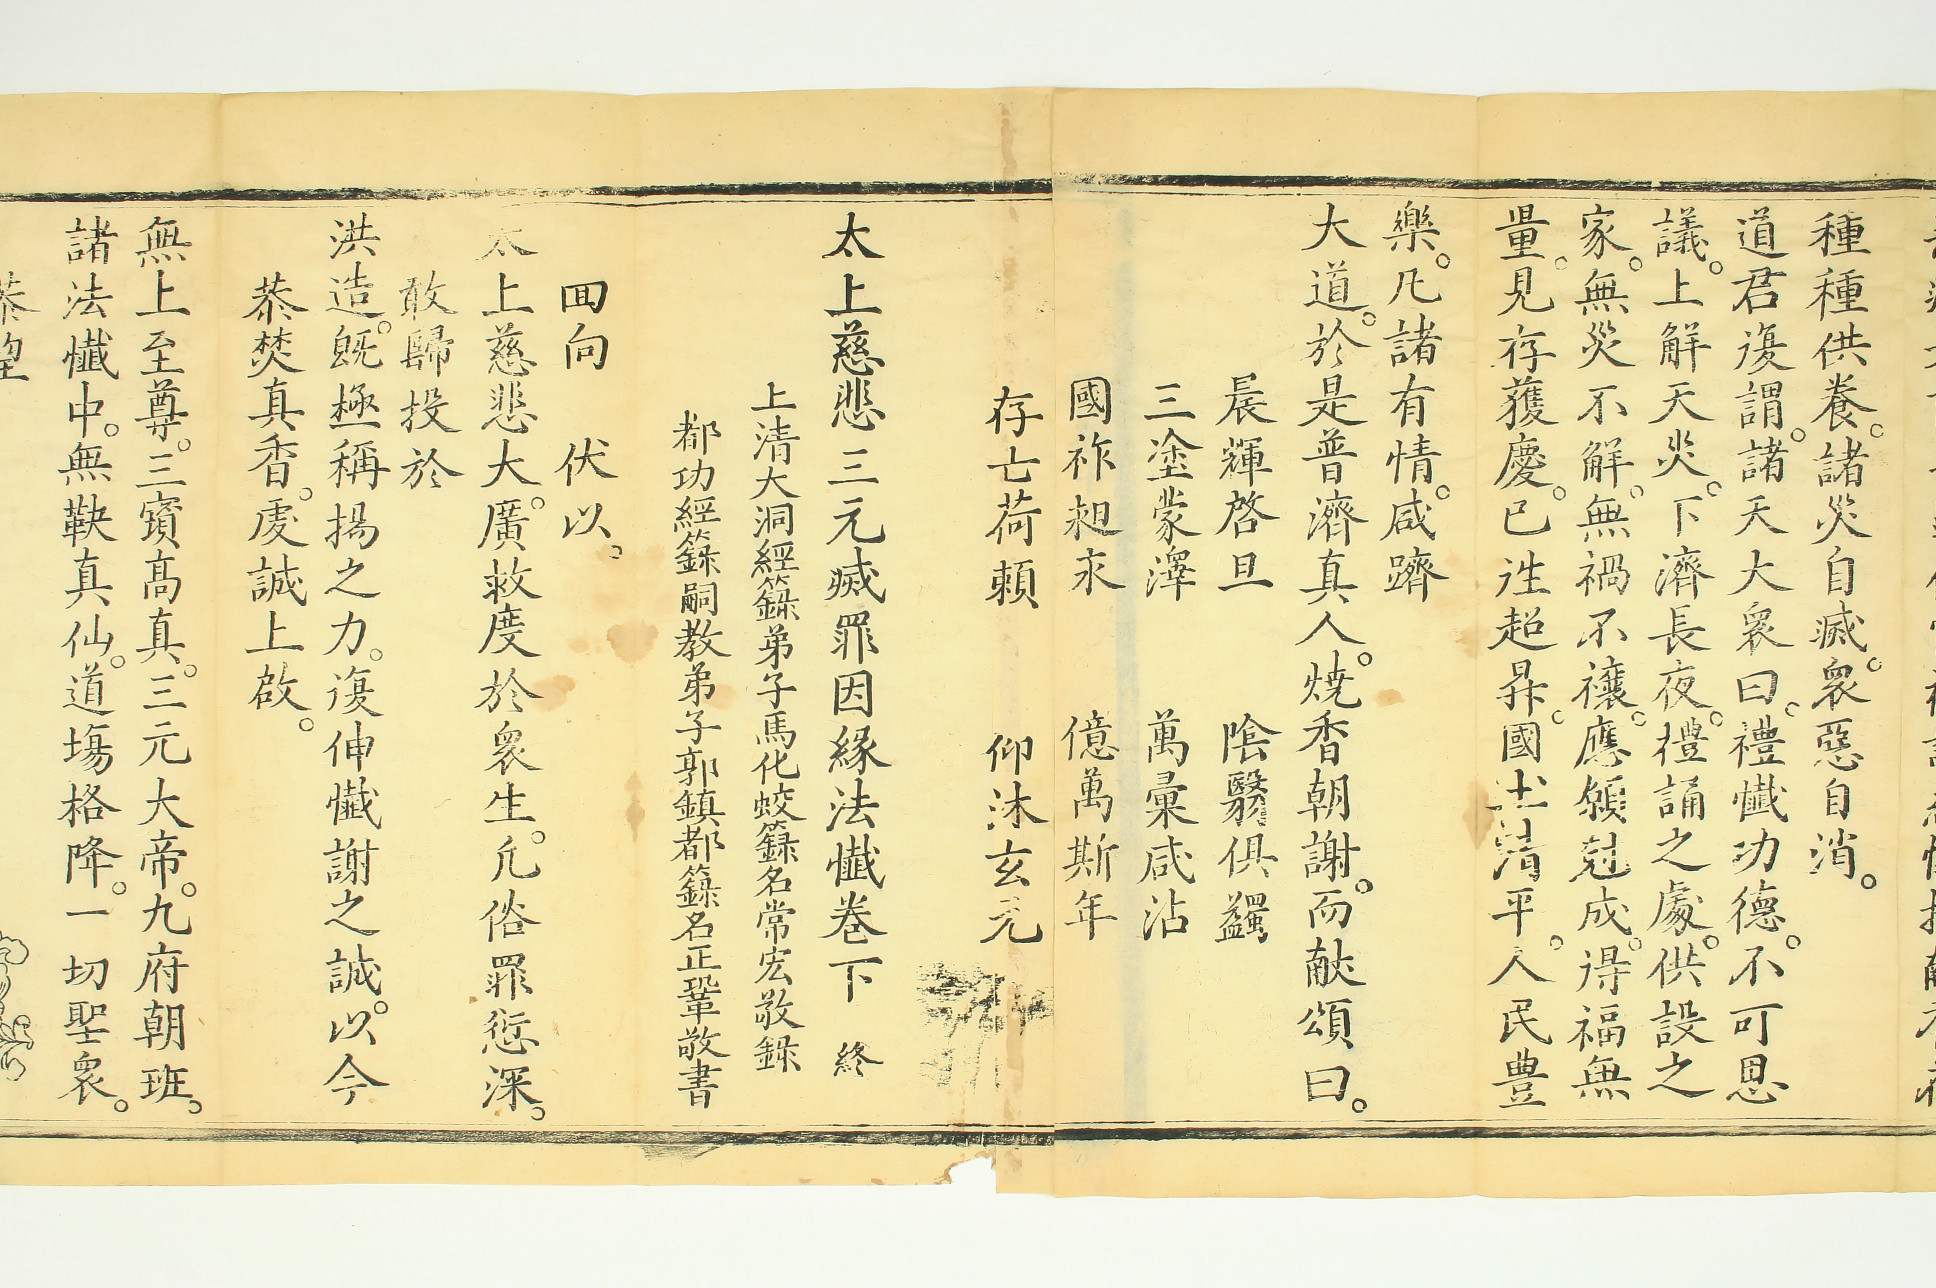 種種供養。諸災自滅。衆惡自消。
道君復謂。諸天大衆曰。禮懺功德。不可思
議。上解天災。下濟長夜。禮誦之處。供設之
家。無災不解。無禍不禳。應願尅成。得福無
量。見存獲慶。已往超昇。國土清平。人民豊
樂。凡諸有情。咸躋
大道。於是普濟真人。燒香朝謝。而獻頌曰。
晨輝啓旦 陰翳俱蠲
三塗蒙澤 萬彙咸沾
國祚昶永 億萬斯年
存亡荷賴 仰沐玄元
太上慈悲三元滅罪因緣法懺卷下 終
上清大洞經籙弟子馬化蛟籙名常宏敬錄
都功經籙嗣教弟子郭鎮都籙名正鞏敬書
回向 伏以。
太上慈悲大。廣救度於衆生。凢俗罪愆深。
敢歸投於
洪造。旣極稱揚之力。復伸懺謝之誠。以今
恭焚真香。虔誠上啟。
無上至尊。三寶高真。三元大帝。九府朝班。
諸法懺中。無鞅真仙。道場格降。一切聖衆。
恭望